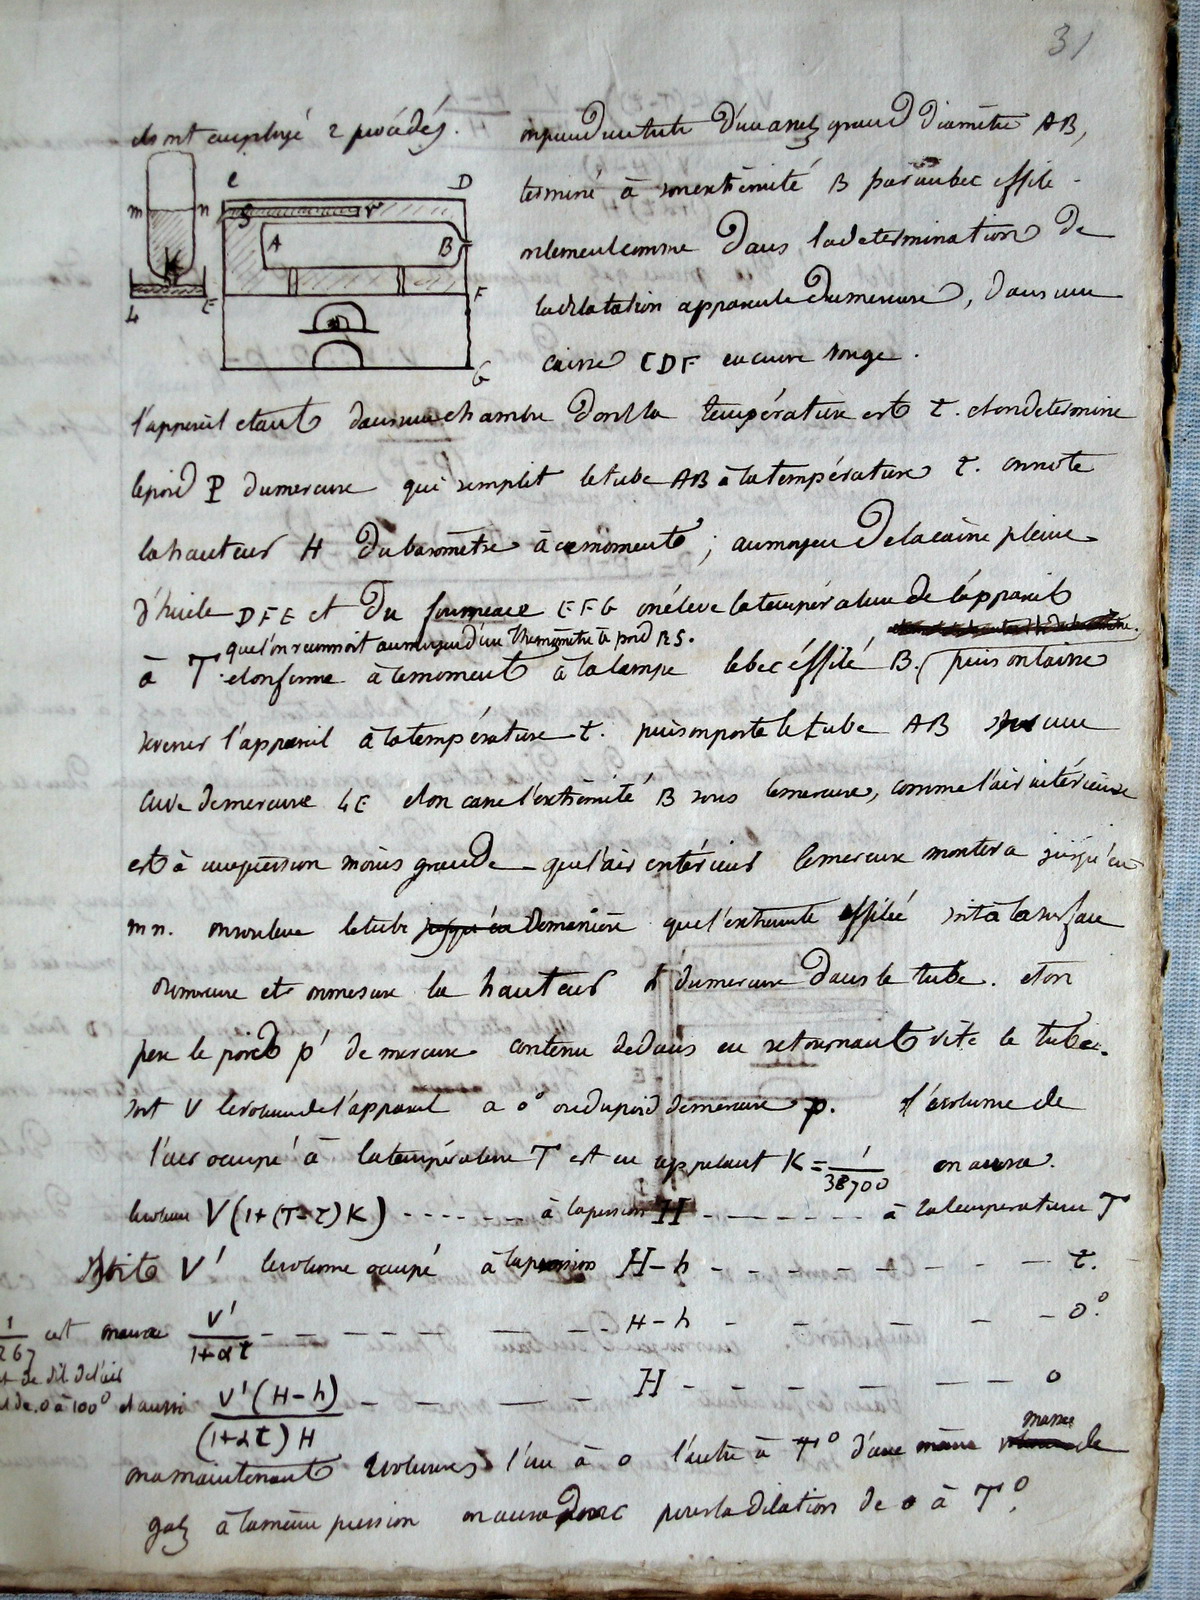 31
ils ont employé 2 procédés.
on prend un tube d'un assez grand diamètre AB,
terminé à son extrémité B par un bec effilé
seulement comme dans la determination de
la dilatation apparente du mercure, dans une
caisse CDF en cuivre rouge.
C D
m n S r
A B
K
L E F
G
l'appareil etant dans une chambre dont la température est t. et on determine
le poid P du mercure qui remplit le tube AB à la température t. on note
la hauteur H du baromètre à ce moment ; au moyen de la caisse pleine
d'huile DFE et du fourneau EFG on éleve la température de l'appareil
que l'on reconnoit au moyen d'un thermomètre à poid RS.
à T et on ferme à ce moment à la lampe le bec éffilé B. puis on laisse
revenir l'appareil à la température t. puis on porte le tube AB sur une
cuve de mercure LE et on casse l'extrêmité B sous le mercure, comme l'air intérieur
est à une pression moins grande que l'air extérieur le mercure montera jusqu'en
mn. on souleve le tube jusqu'en de manière que l'extremité effilée soit à la surface
du mercure et on mesure la hauteur h du mercure dans le tube. et on
pese le poid p' de mercure contenu dedans en retournant vite le tube.
soit V le volume de l'appareil à 0° ou du poid de mercure p. le volume de
l'air occupé à la température T est en appelant K = 1/38700 on aura.
le volume V(1+(T-t)K) - - - - - - à la pression H - - - - - - à la temperature T
Soit V' le volume occupé à la pression H-h - - - - - - - - - t.
1/267 est on aura V'/1+αt - - - - - - - H-h - - - - - - 0°.
de dil de l'air
de 0 à 100° et aussi V'(H-h)/(1+αt)H - - - - - H - - - - - - 0
masse
on a maintenant 2 volumes l'un à 0 l'autre à T° d'une même volume de
gaz à la même pression on aura donc pour la dilation de 0 à T°.